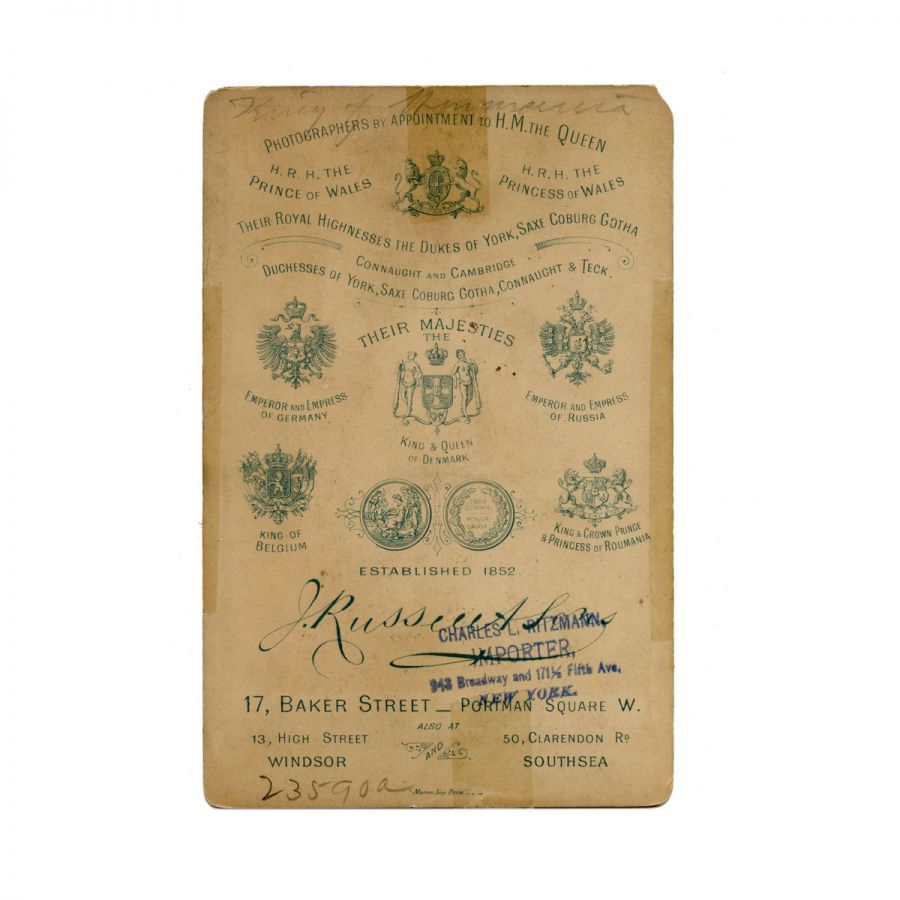 King of Roumania
PHOTOGRAPHERS BY APPOINTMENT TO H.M. THE QUEEN
H. R. H. THE
PRINCE OF WALES
H. R. H. THE
PRINCESS OF WALES
THEIR ROYAL HIGHNESSES THE DUKES OF YORK, SAXE COBURG GOTHA
CONNAUGHT AND CAMBRIDGE
DUCHESSES OF YORK, SAXE COBURG GOTHA, CONNAUGHT & TECK.
THEIR MAJESTIES
THE
EMPEROR AND EMPRESS
OF GERMANY
EMPEROR AND EMPRESS
OF RUSSIA
KING & QUEEN
OF DENMARK
KING OF
BELGIUM
KING & CROWN PRINCE
& PRINCESS OF ROUMANIA
ESTABLISHED 1852
J. Russell & Sons
CHARLES L. RITZMANN,
IMPORTER,
943 Broadway and 171½ Fifth Ave.
NEW YORK.
17, BAKER STREET _ PORTMAN SQUARE W.
ALSO AT
13, HIGH STREET
WINDSOR
AND
50, CLARENDON RD
SOUTHSEA
23590a
Marion, Imp. Paris